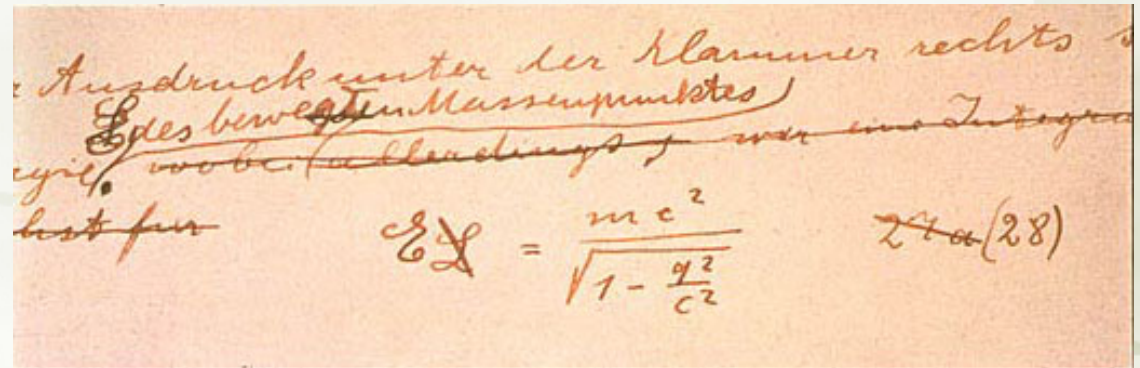 Ausdruck unter der Klammer rechts
L des bewegten Massenpunktes
rgie. wobei (allerdings, wer eine Integra
hst für
E L = mc² / √(1 - q²/c²) 27a (28)